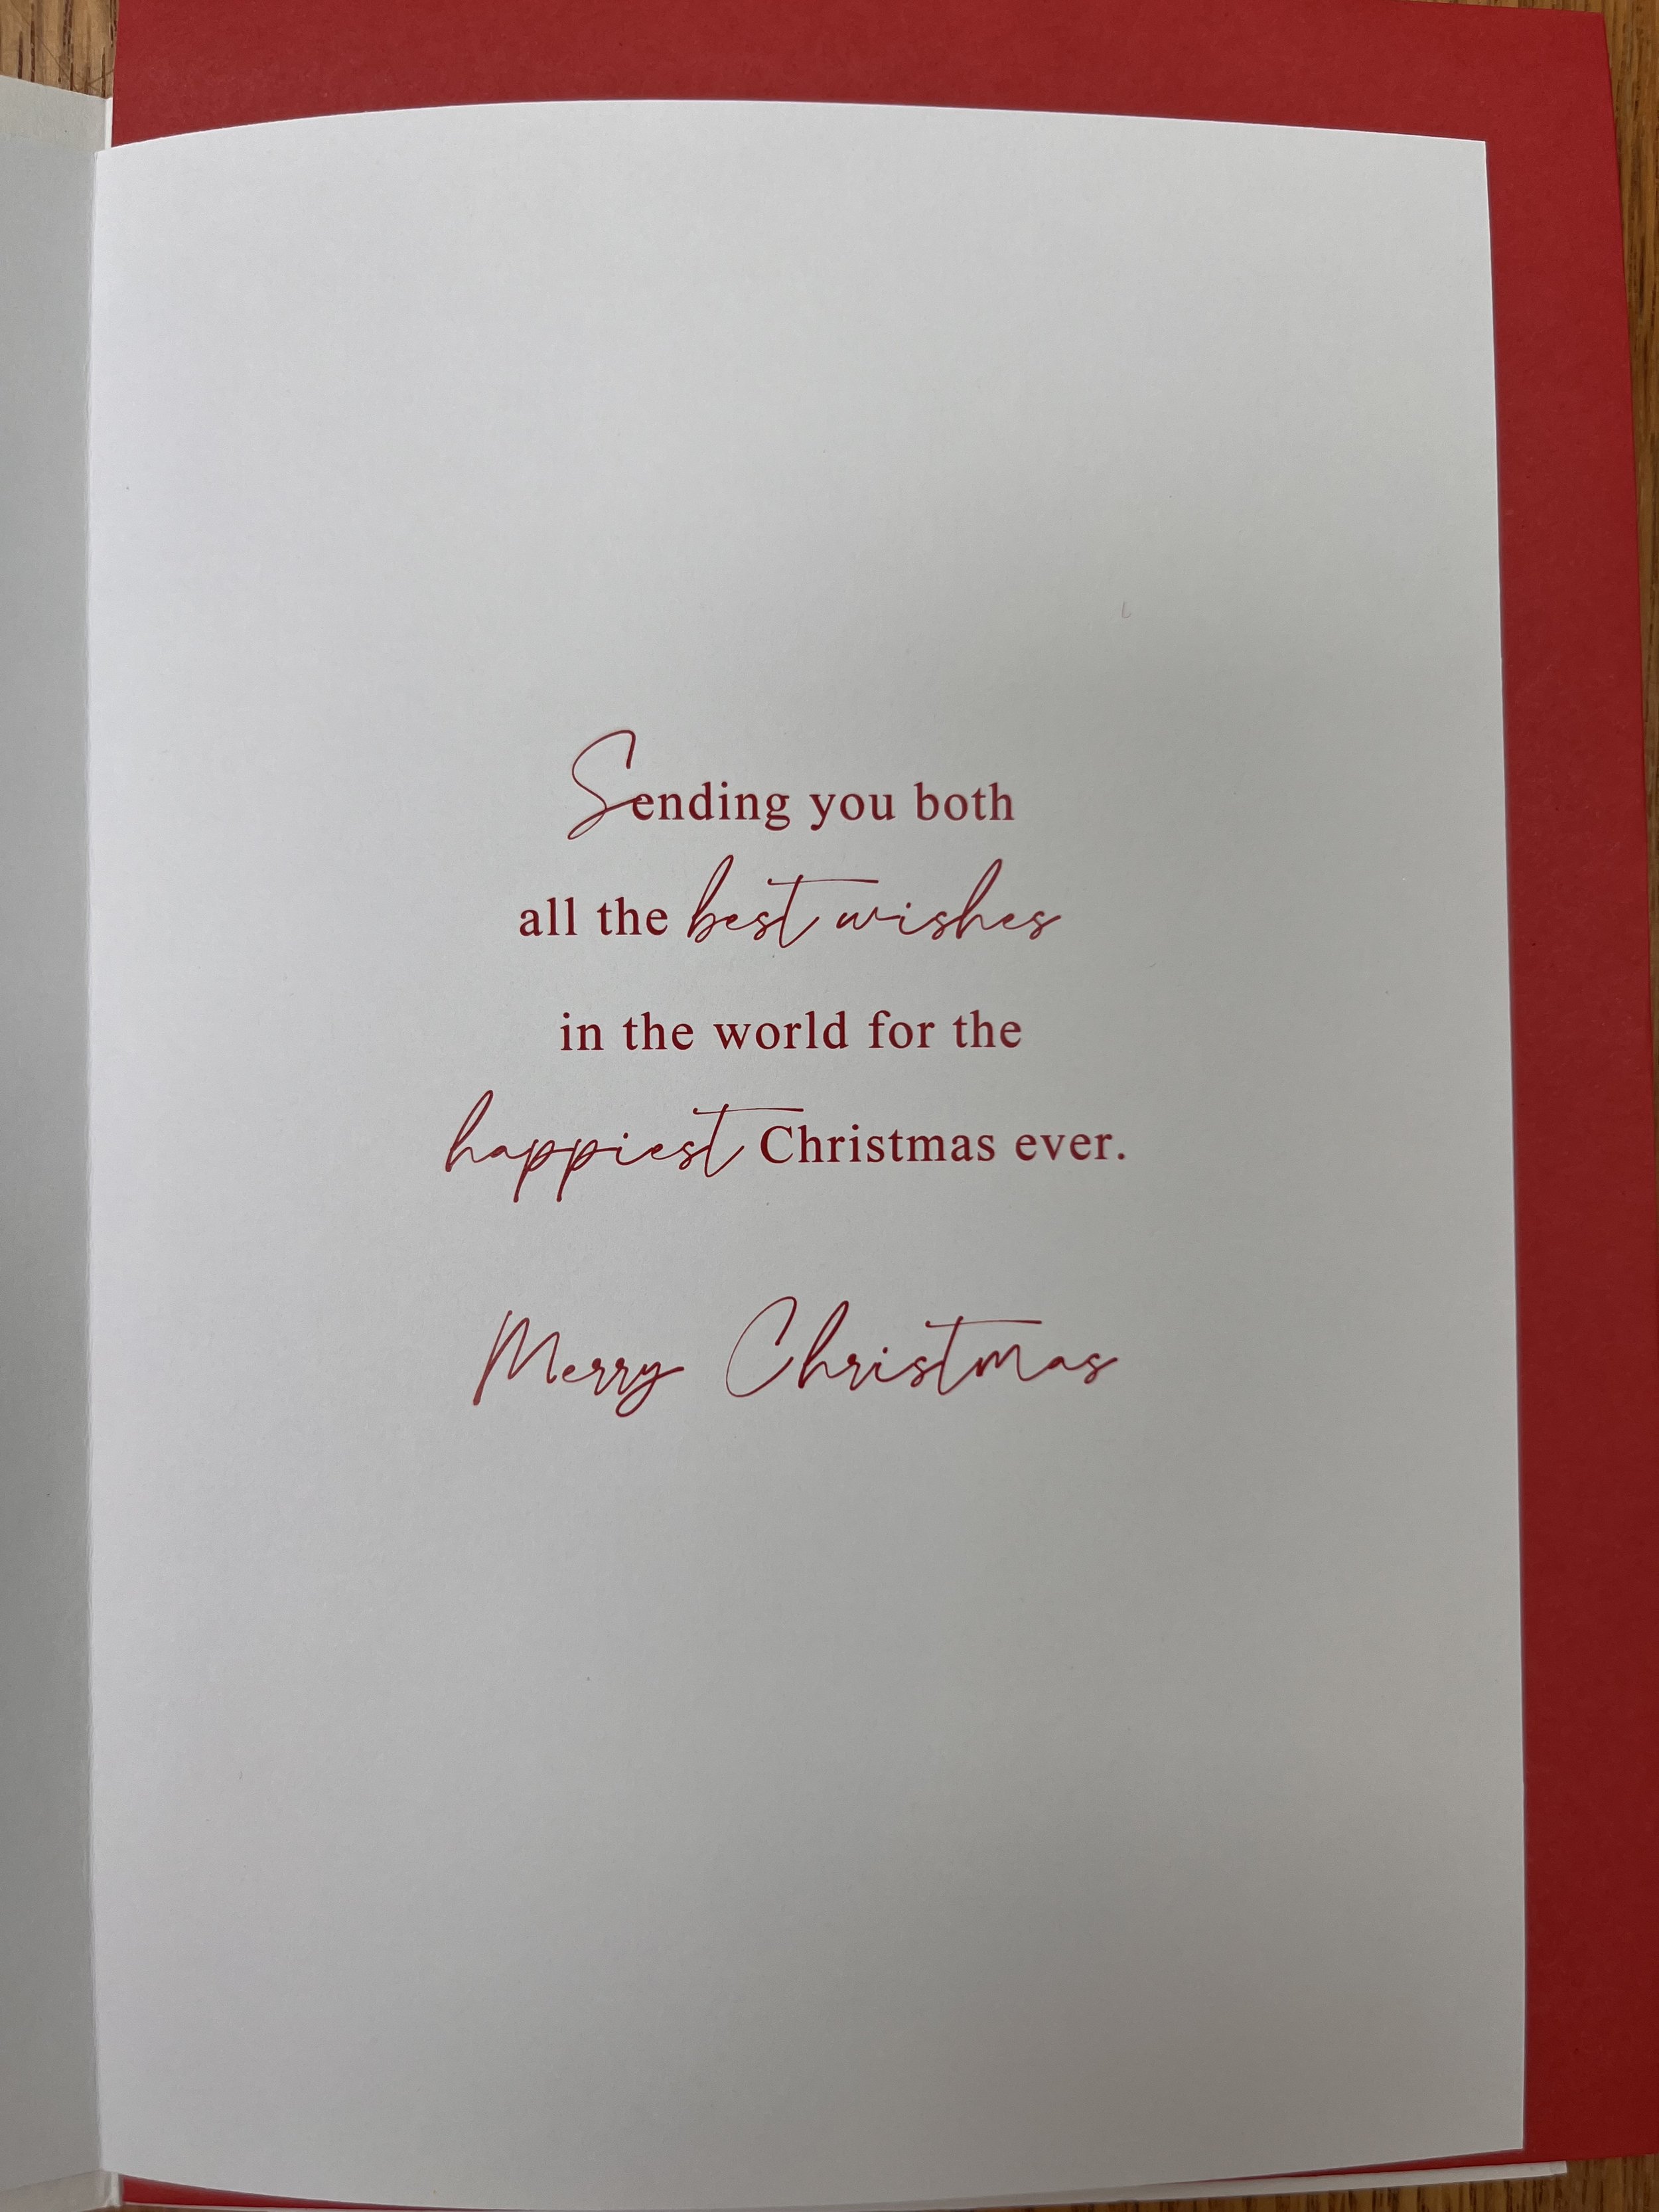 Sending you both
all the best wishes
in the world for the
happiest Christmas ever.
Merry Christmas